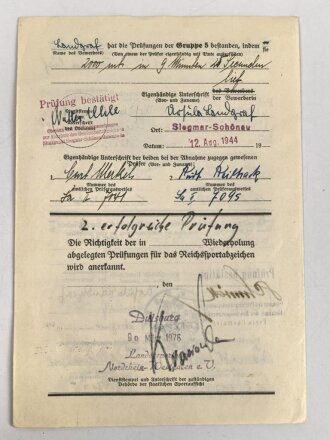 Landgraf hat die Prüfungen der Gruppe 5 bestanden, indem
Name des Bewerbers) (Von einem der Prüfer eigenhändig mit Tinte auszufüllen)
2000 mtr in 9 Minuten 28 Secunden
lief
Prüfung bestätigt
Eigenhändige Unterschrift des Bewerbers
(Vor- und Zuname) der Bewerberin
Unterschrift
Ursula Landgraf
Ort: Siegmar-Schönau
Datum: 12. Aug. 1944 19
Eigenhändige Unterschrift der beiden bei der Abnahme zugegen gewesenen
Prüfer (Vor- und Zuname)
Nummer des Nummer des
amtlichen Prüfungsausweises amtlichen Prüfungsausweises
2. erfolgreiche Prüfung
Die Richtigkeit der in Wiederholung
abgelegten Prüfungen für das Reichssportabzeichen
wird anerkannt.
, den
Duisburg
1976
Landessportbund
Nordrhein-Westfalen e. V.
Dienststempel und Unterschrift der zuständigen
Behörde der staatlichen Sportaufsicht